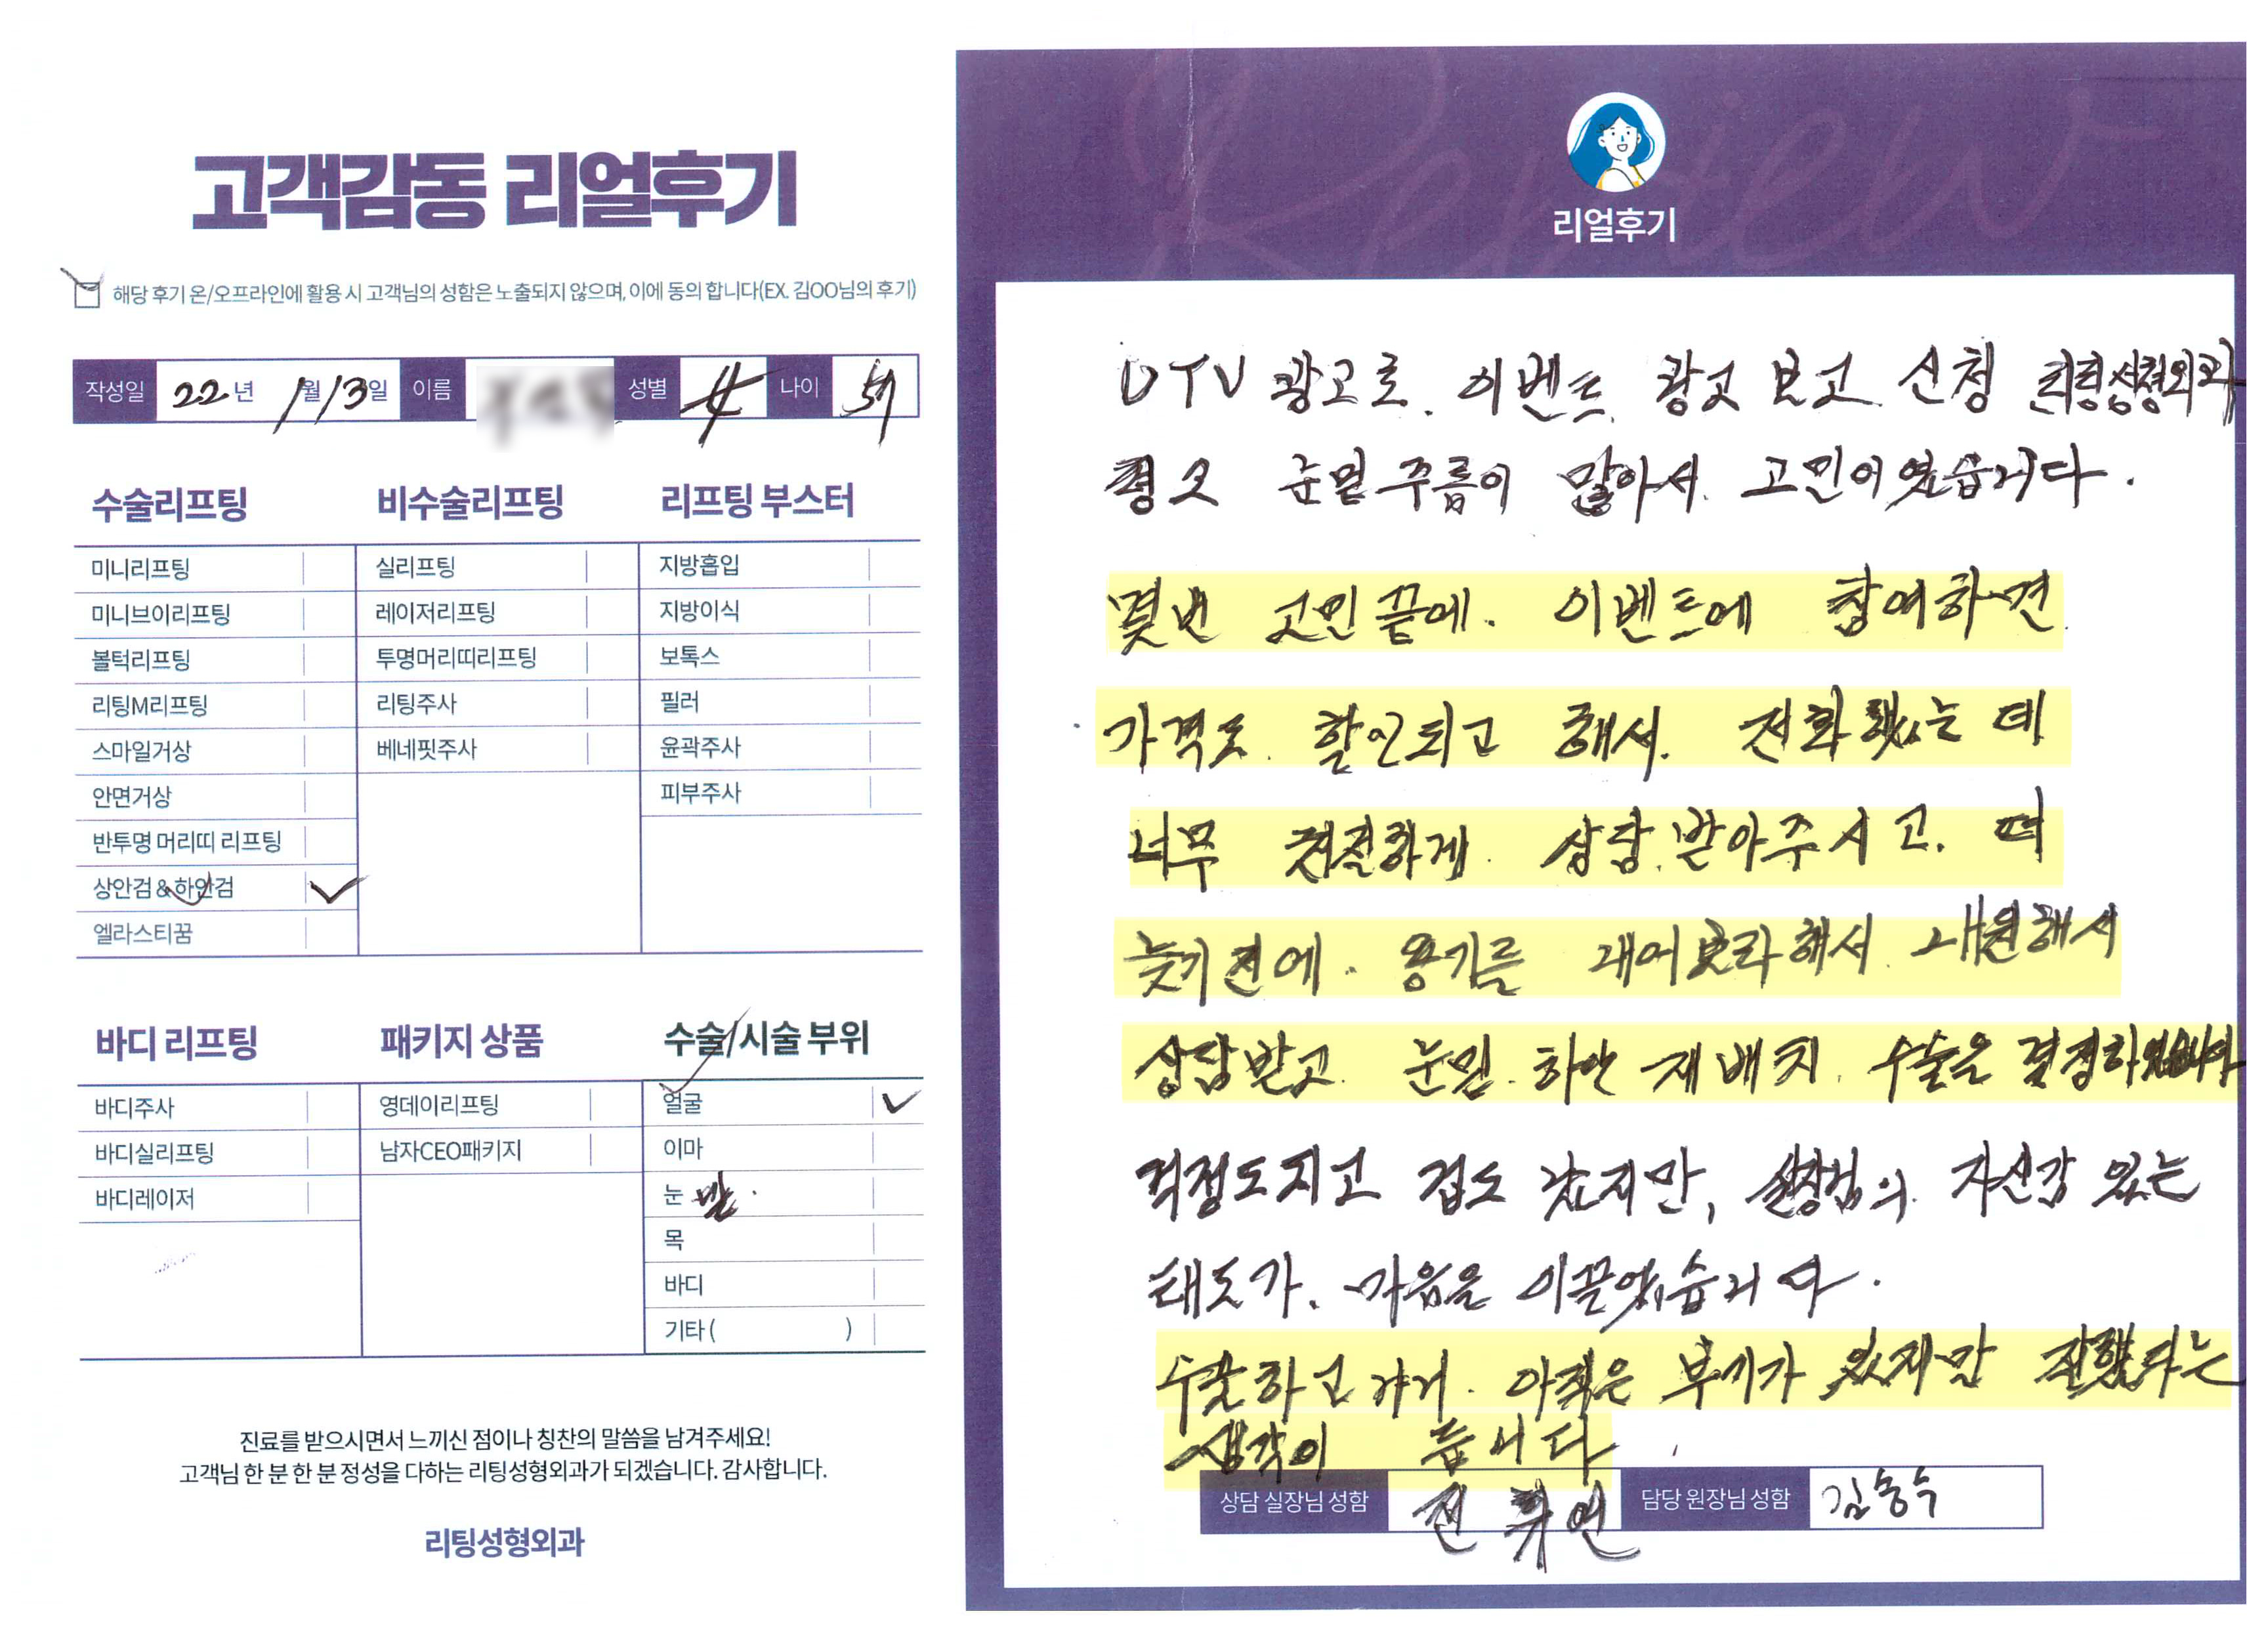 고객감동 리얼후기
해당 후기 온/오프라인에 활용 시 고객님의 성함은 노출되지 않으며, 이에 동의 합니다(EX. 김OO님의 후기)
작성일 22년 1월 13일 이름 성별 女 나이
수술리프팅
미니리프팅
미니브이리프팅
볼턱리프팅
리팅M리프팅
스마일거상
안면거상
반투명 머리띠 리프팅
상안검&하안검
엘라스티꿈
비수술리프팅
실리프팅
레이저리프팅
투명머리띠리프팅
리팅주사
베네핏주사
리프팅 부스터
지방흡입
지방이식
보톡스
필러
윤곽주사
피부주사
바디 리프팅
바디주사
바디실리프팅
바디레이저
패키지 상품
영데이리프팅
남자CEO패키지
수술/시술 부위
얼굴
이마
눈 밑.
목
바디
기타 ( )
진료를 받으시면서 느끼신 점이나 칭찬의 말씀을 남겨주세요!
고객님 한 분 한 분 정성을 다하는 리팅성형외과가 되겠습니다. 감사합니다.
리팅성형외과
Review
리얼후기
UTU 광고로. 이벤트 광고 보고 신청 리팅성형외과
평소 눈밑주름이 많아서 고민이였습니다.
몇번 고민끝에. 이벤트에 참여하면
가격도 할인되고 해서. 전화했는데
너무 친절하게 상담 받아주시고. 더
늦기전에. 용기를 내어보라해서 내원해서
상담받고 눈밑 하안 재배치 수술을 결정하였습니다
걱정도지고 겁도 났지만, 실장님의 자신감 있는
태도가. 마음을 이끌었습니다.
수술하고나니 아직은 부기가 있지만 잘했다는
생각이 듭니다
상담 실장님 성함 전 연
담당 원장님 성함 김승수